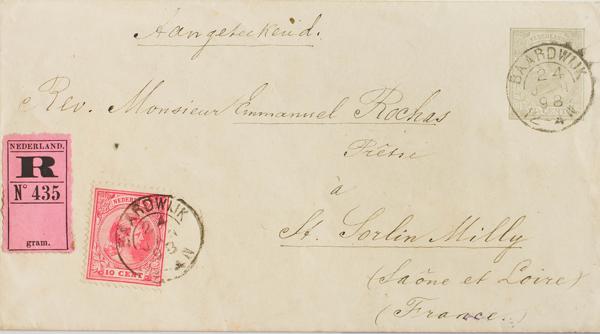 Aangeteekend.
NEDERLAND
BAARDWIJK
24
98
12 4N
Rev. Monsieur Emmanuel Rochas
Prêtre
à
St. Sorlin Milly
(Saône et Loire)
(France.)
NEDERLAND.
R
N° 435
gram.
BAARDWIJK
10 CENT